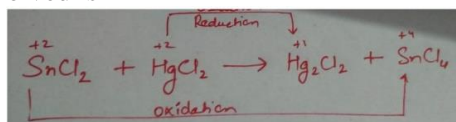 Reduction
+2 +2 +1 +4
SnCl₂ + HgCl₂ → Hg₂Cl₂ + SnCl₄
oxidation